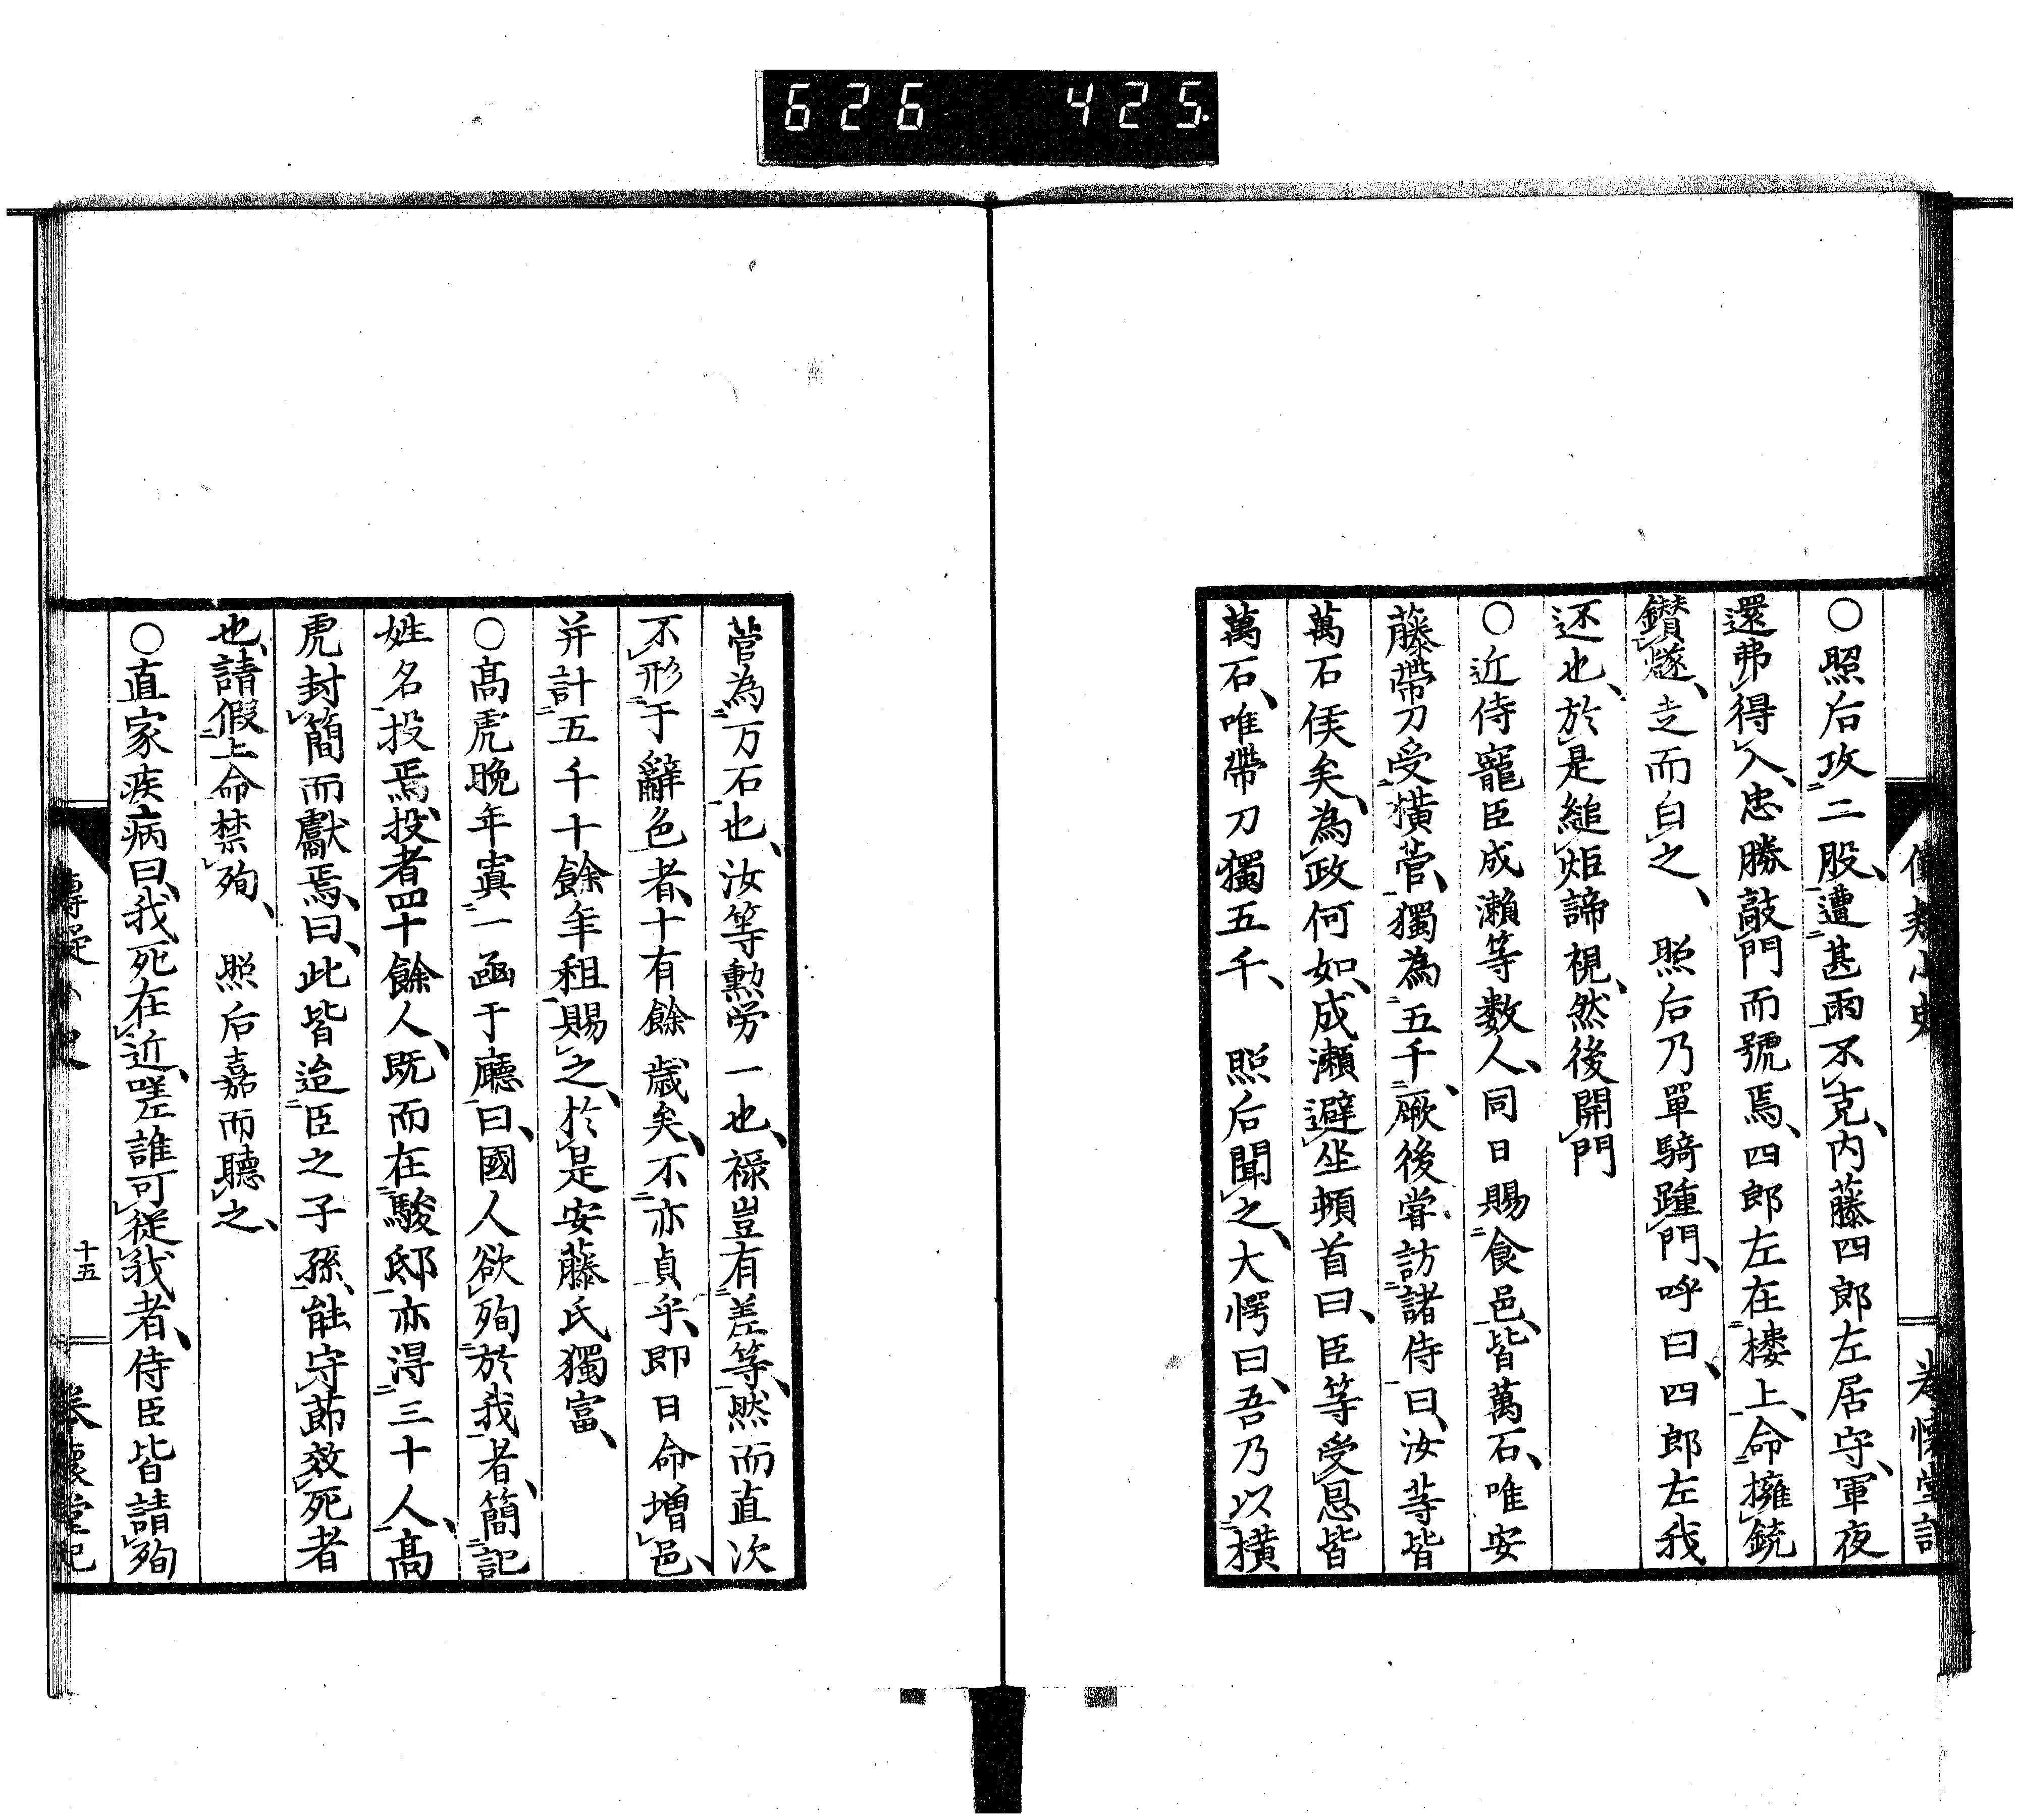 626 425.
〇照后攻二股、遭甚雨不克、内藤四郎左居守、軍夜
還弗得入、忠勝敲門而號焉、四郎左在楼上、命擁銃
鑚燧、走而白之、 照后乃單騎踵門、呼曰、四郎左我
还也、於是縋炬諦視、然後開門
〇近侍寵臣成瀬等数人、同日賜食邑、皆萬石、唯安
藤帶刀受横菅、獨為五千、厥後甞訪諸侍曰、汝等皆
萬石侯矣、為政何如、成瀬避坐頓首曰、臣等受恩皆
萬石、唯帶刀獨五千、 照后聞之、大愕曰、吾乃以横
菅為万石也、汝等勲労一也、禄豈有差等、然而直次
不形于辭色者、十有餘歳矣、不亦貞乎、即日命増邑、
并計五千十餘年租賜之、於是安藤氏獨富、
〇髙虎晩年寘一凾于廳曰、國人欲殉於我者、簡記
姓名投焉、投者四十餘人、既而在駿邸亦得三十人、髙
虎封簡而獻焉、曰、此皆迨臣之子孫、能守莭效死者
也、請假上命禁殉、 照后嘉而聽之、
〇直家疾病曰、我死在近、嗟誰可從我者、侍臣皆請殉
十五